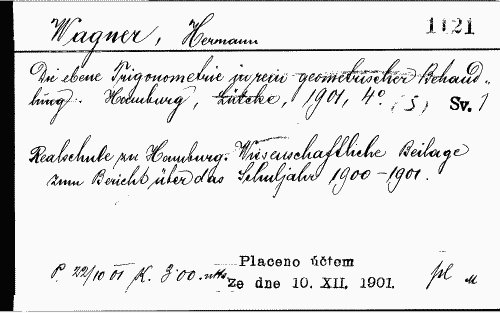 Wagner, Hermann 1121
Die ebene Trigonometrie in rein geometrischer Behand-
lung. Hamburg, Lütcke, 1901, 4° (S) Sv. 1
Realschule zu Hamburg. Wissenschaftliche Beilage
zum Bericht über das Schuljahr 1900-1901.
P. 22/10 01 K. 3·00 Placeno účtem pl
ze dne 10. XII. 1901.